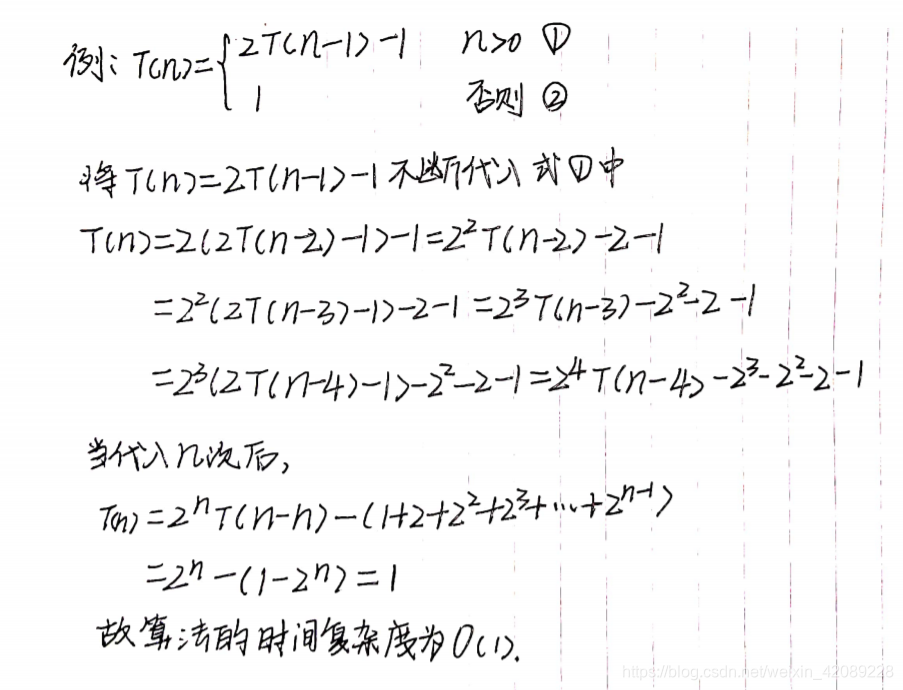 例: T(n)={2T(n-1)-1 n>0 ①
1 否则 ②
将T(n)=2T(n-1)-1不断代入式①中
T(n)=2(2T(n-2)-1)-1=2²T(n-2)-2-1
=2²(2T(n-3)-1)-2-1=2³T(n-3)-2²-2-1
=2³(2T(n-4)-1)-2²-2-1=2⁴T(n-4)-2³-2²-2-1
当代入n次后,
T(n)=2ⁿT(n-n)-(1+2+2²+2³+...+2ⁿ⁻¹)
=2ⁿ-(1-2ⁿ)=1
故算法的时间复杂度为O(1).
https://blog.csdn.net/weixin_42089228